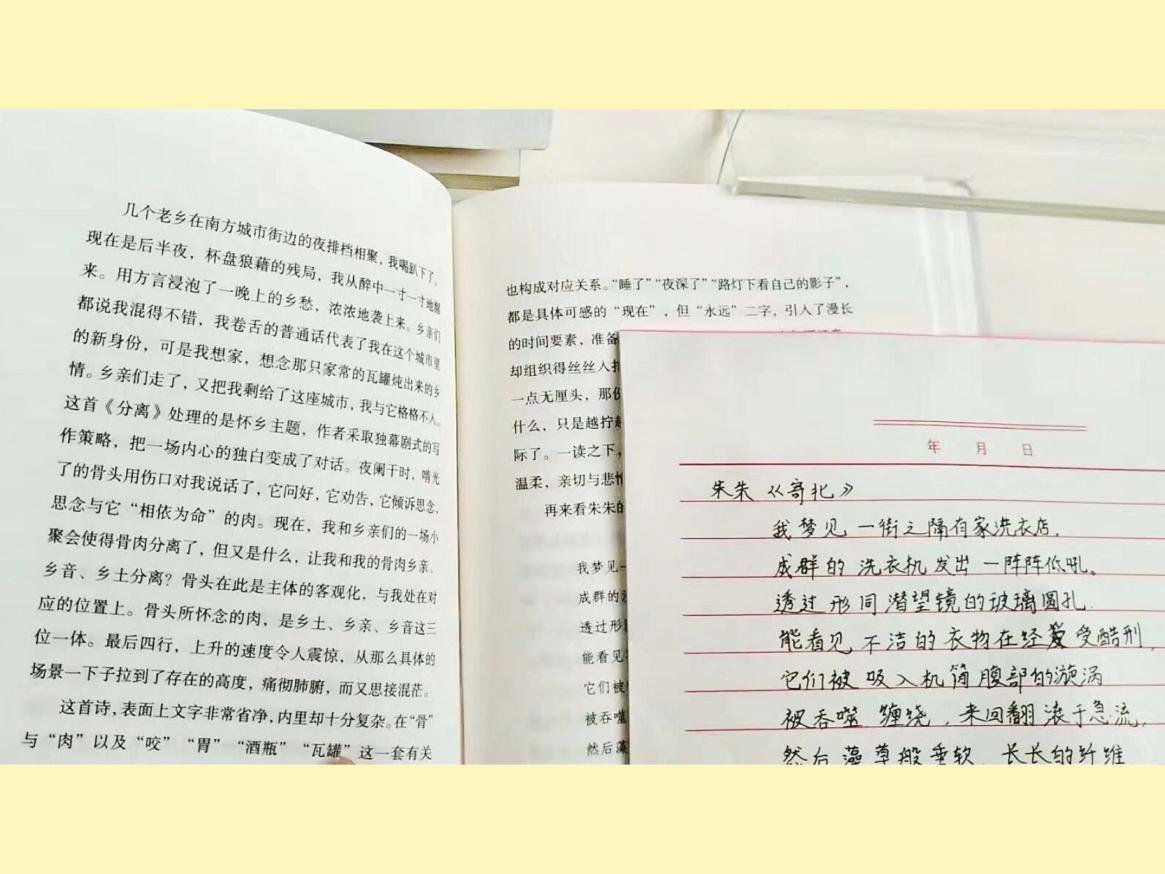 几个老乡在南方城市街边的夜排档相聚，我喝趴下了。
现在是后半夜，杯盘狼藉的残局，我从醉中一寸一寸地醒
来。用方言浸泡了一晚上的乡愁，浓浓地袭上来。乡亲们
都说我混得不错，我卷舌的普通话代表了我在这个城市里
的新身份，可是我想家，想念那只家常的瓦罐炖出来的乡
情。乡亲们走了，又把我剩给了这座城市，我与它格格不入。
这首《分离》处理的是怀乡主题，作者采取独幕剧式的写
作策略，把一场内心的独白变成了对话。夜阑干时，啃光
了的骨头用伤口对我说话了，它问好，它劝告，它倾诉思念，
思念与它“相依为命”的肉。现在，我和乡亲们的一场小
聚会使得骨肉分离了，但又是什么，让我和我的骨肉乡亲、
乡音、乡土分离？骨头在此是主体的客观化，与我处在对
应的位置上。骨头所怀念的肉，是乡土、乡亲、乡音这三
位一体。最后四行，上升的速度令人震惊，从那么具体的
场景一下子拉到了存在的高度，痛彻肺腑，而又思接混茫。
这首诗，表面上文字非常省净，内里却十分复杂。在“骨”
与“肉”以及“咬”“胃”“酒瓶”“瓦罐”这一套有关
也构成对应关系。“睡了”“夜深了”“路灯下看自己的影子”，
都是具体可感的“现在”，但“永远”二字，引入了漫长
的时间要素，准备
却组织得丝丝入扣
一点无厘头，那份
什么，只是越拧越
际了。一读之下，
温柔，亲切与悲悯
再来看朱朱的
我梦见一
成群的洗
透过形同
能看见不
它们被吸
被吞噬
然后藻
年 月 日
朱朱《寄北》
我梦见一街之隔有家洗衣店，
成群的洗衣机发出一阵阵低吼。
透过形同潜望镜的玻璃圆孔，
能看见不洁的衣物在经受酷刑，
它们被吸入机筒腹部的漩涡
被吞噬缠绕，来回翻滚于急流，
然后藻草般垂软，长长的纤维